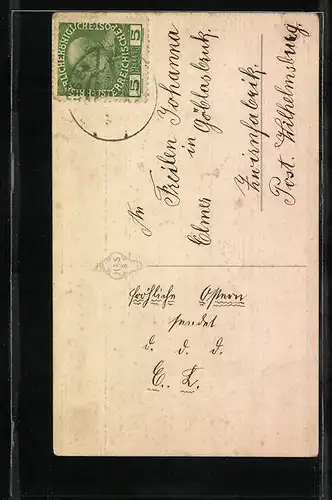 KAISERLICHE KÖNIGLICHE ÖSTERREICHISCHE POST
5 5
An
Freilen Johanna
Elmer in Göblasbruk.
Zwirnfabrik.
Post. Wilhelmsburg.
H&S
B
Fröhliche Ostern
sendet
d. d. d.
C. L.